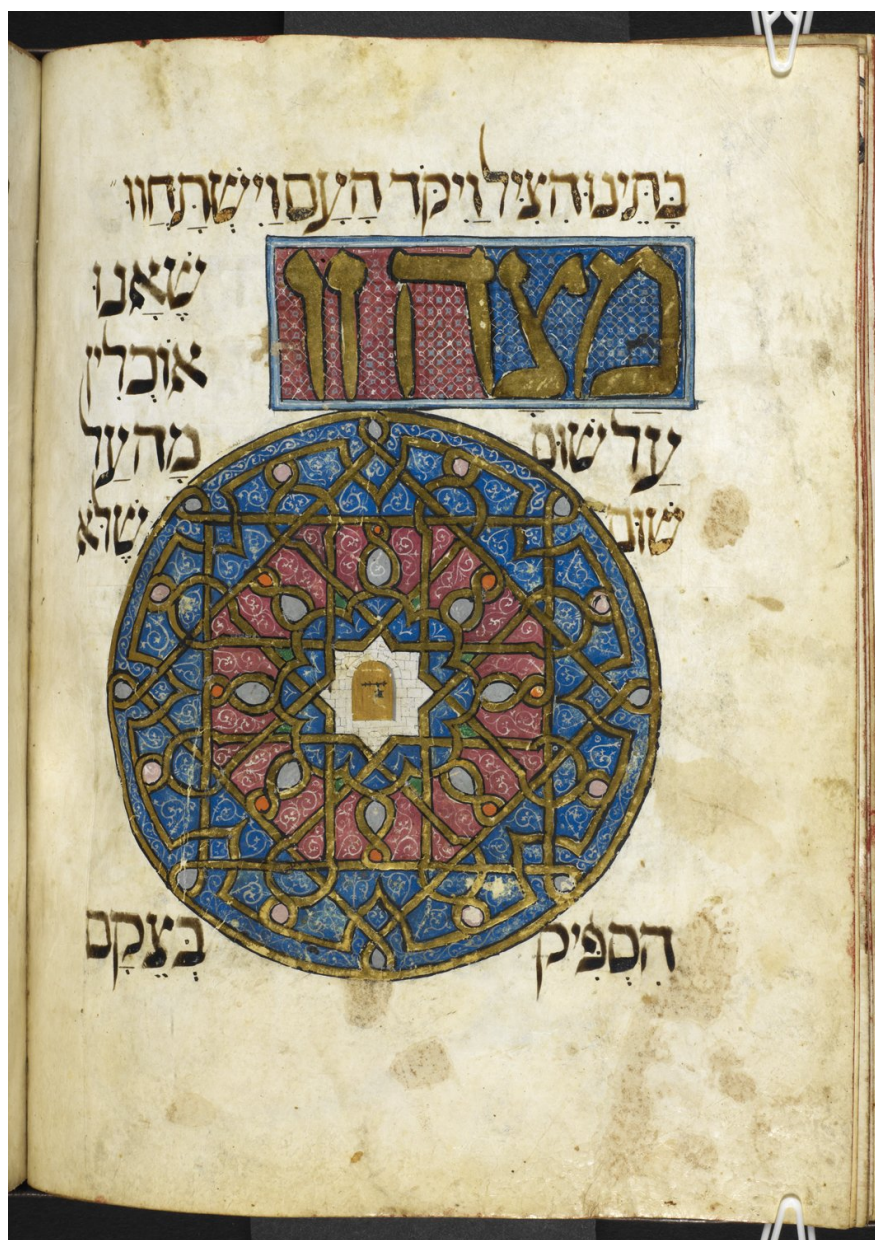 בָּתֵּינוּ הִצִּיל וַיִּקֹּד הָעַם וַיִּשְׁתַּחֲווּ
מצה זו שֶׁאַנוּ
אוֹכְלִין
עַל שׁוּם מַה עַל
שׁוּם שֶׁלֹּא
הִסְפִּיק בְּצֵקָם